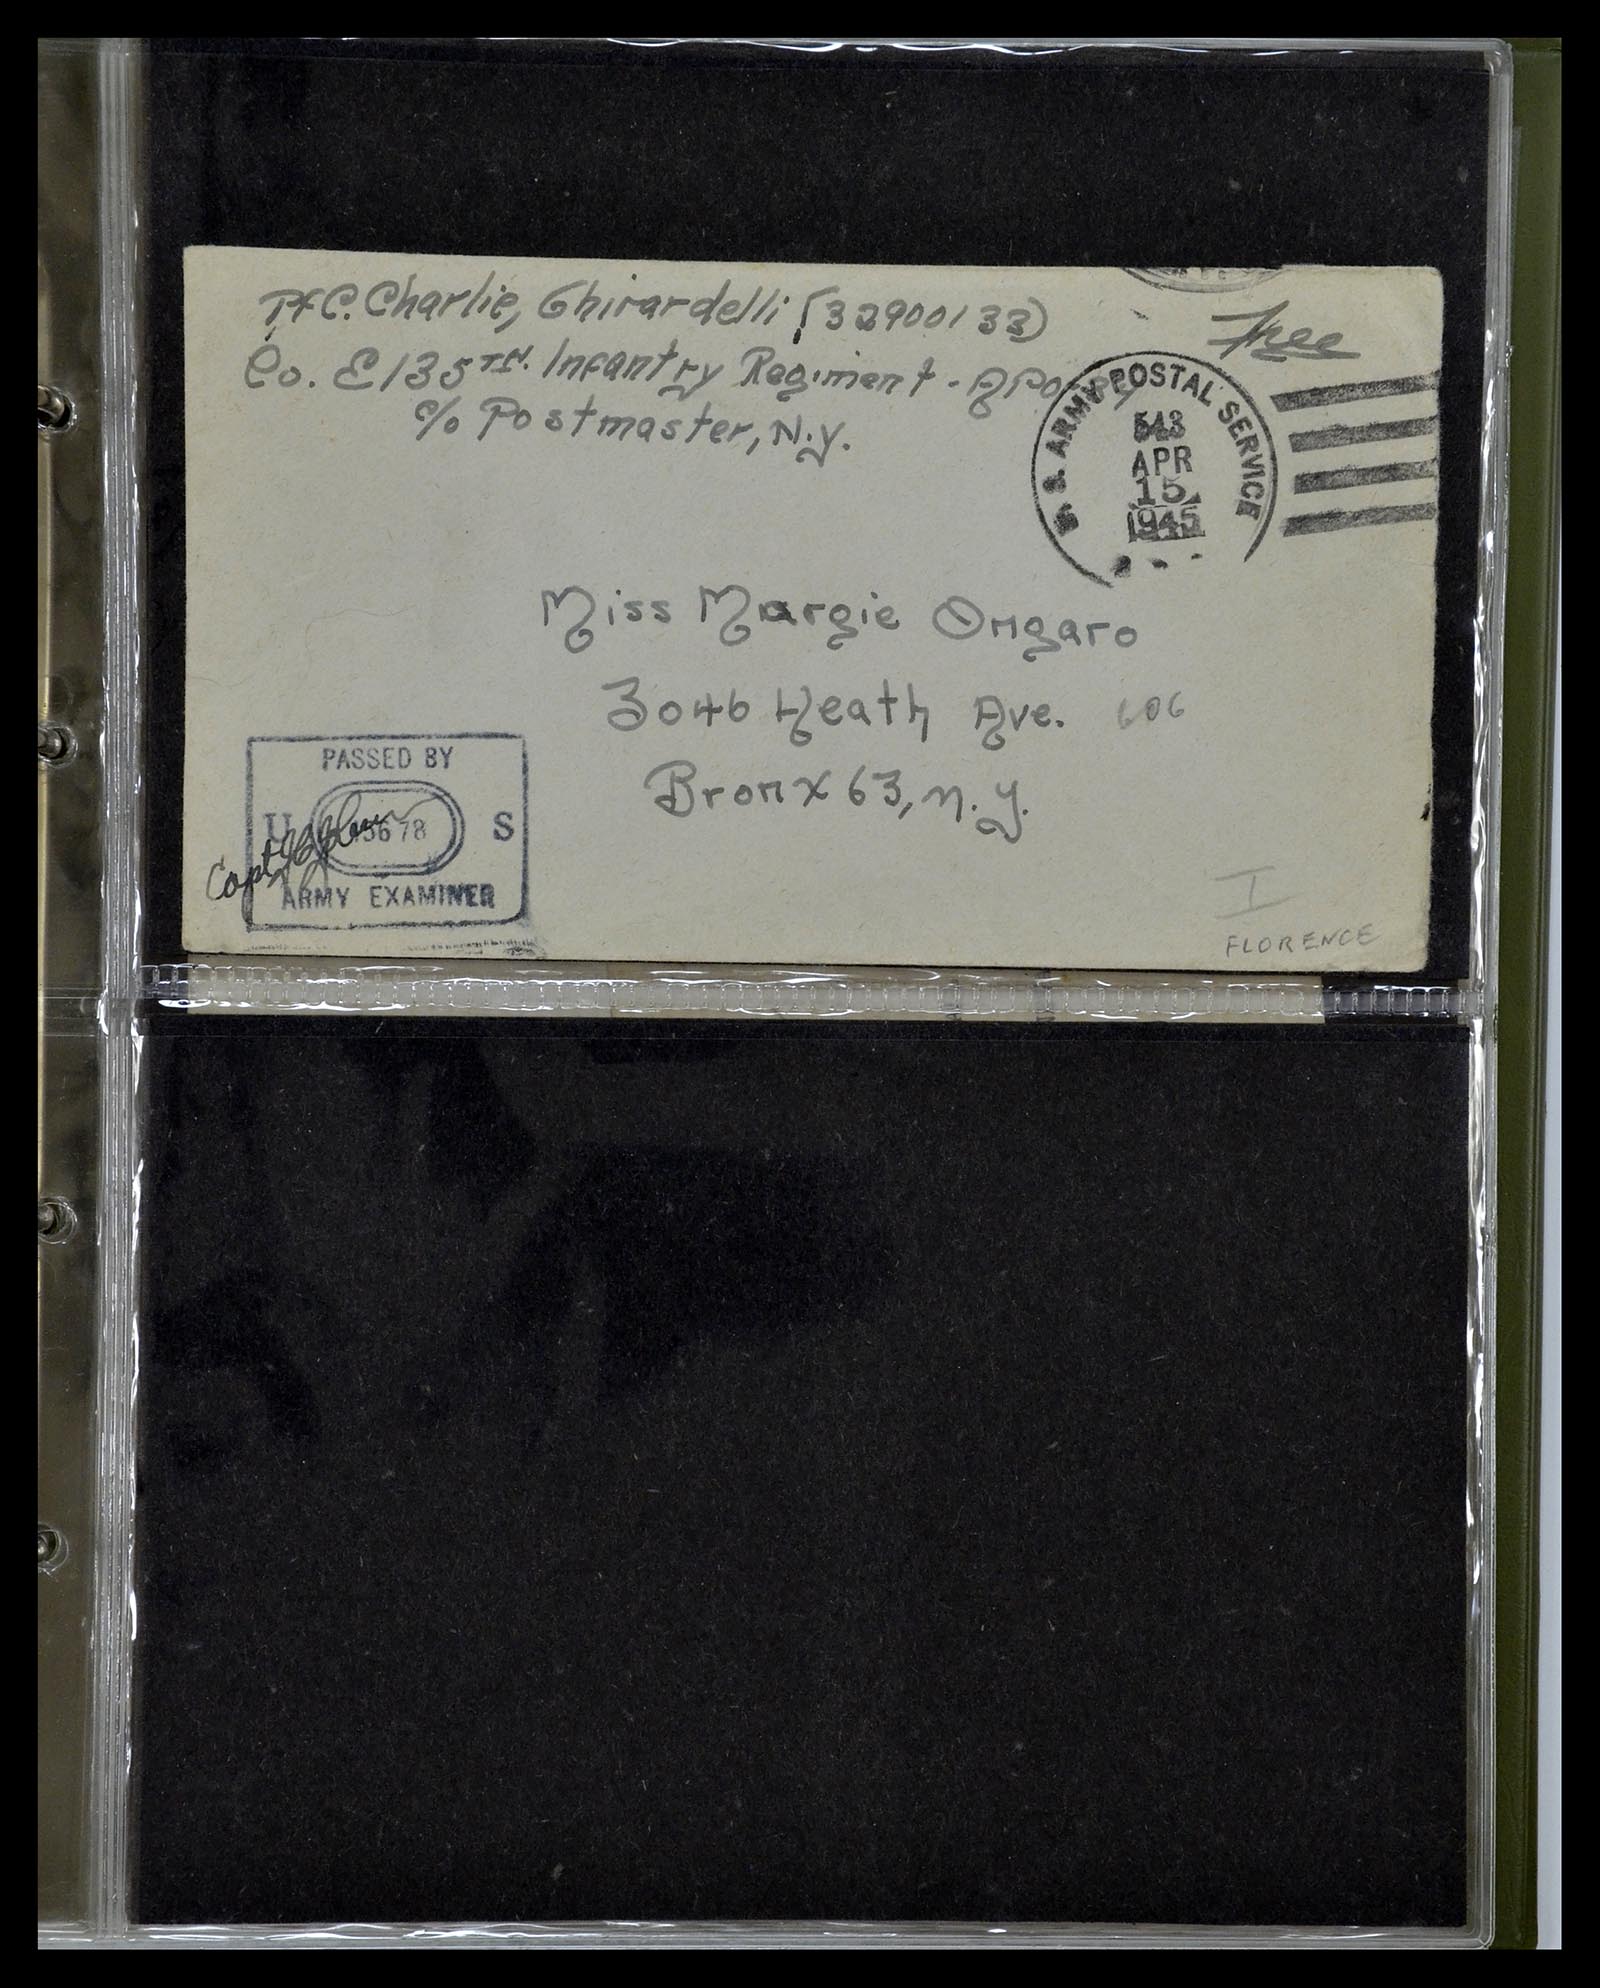 PFC. Charlie, Ghirardelli (32900133)
Co. E 135TH. Infantry Regiment - APO
c/o Postmaster, N.Y.
Free
U. S. ARMY POSTAL SERVICE
543
APR
15
1945
Miss Margie Ongaro
3046 Heath Ave. 606
Bronx 63, N.Y.
PASSED BY
U S
ARMY EXAMINER
Capt
I
FLORENCE